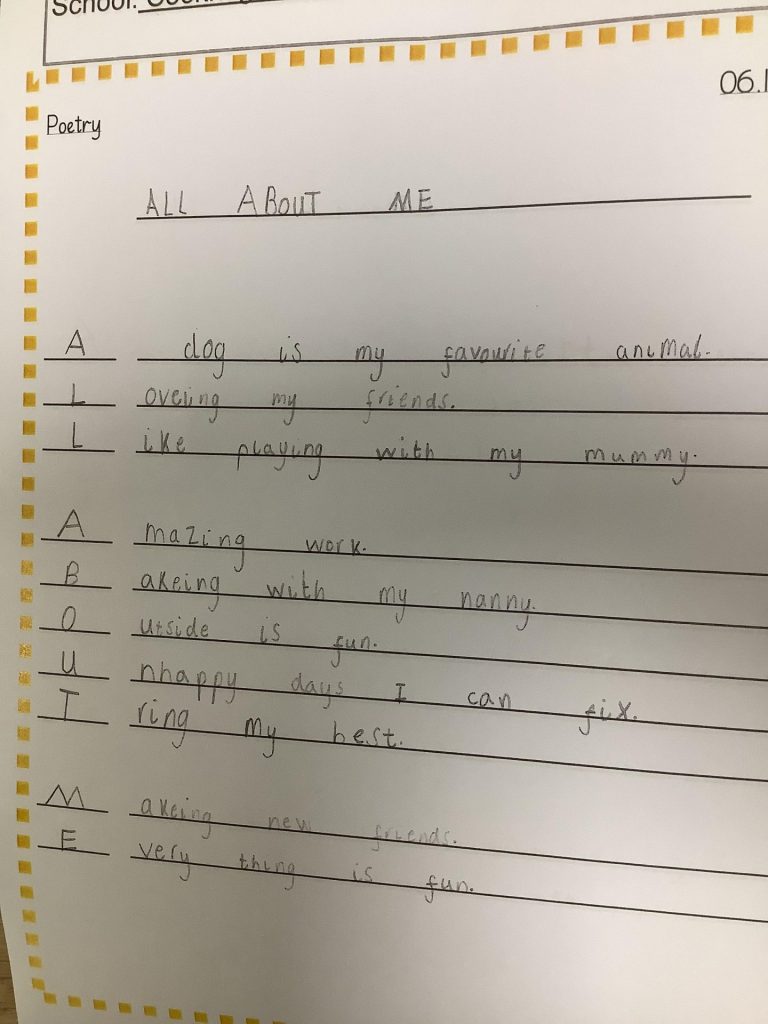 School:
06.1
Poetry
ALL ABOUT ME
A dog is my favourite animal.
L oveing my friends.
L ike playing with my mummy.
A mazing work.
B akeing with my nanny.
O utside is fun.
U nhappy days I can fix.
T ring my best.
M akeing new friends.
E very thing is fun.